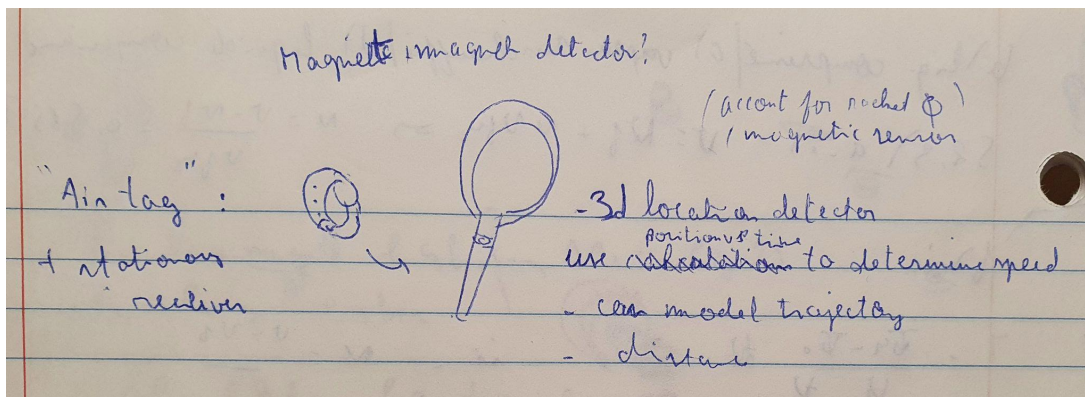 Magnet + magnet detector?
(account for racket ϕ)
/ magnetic sensor
"Air tag" :
+ stationary
receiver
- 3d location detector
position vs time
use to determine speed
- can model trajectory
- distance